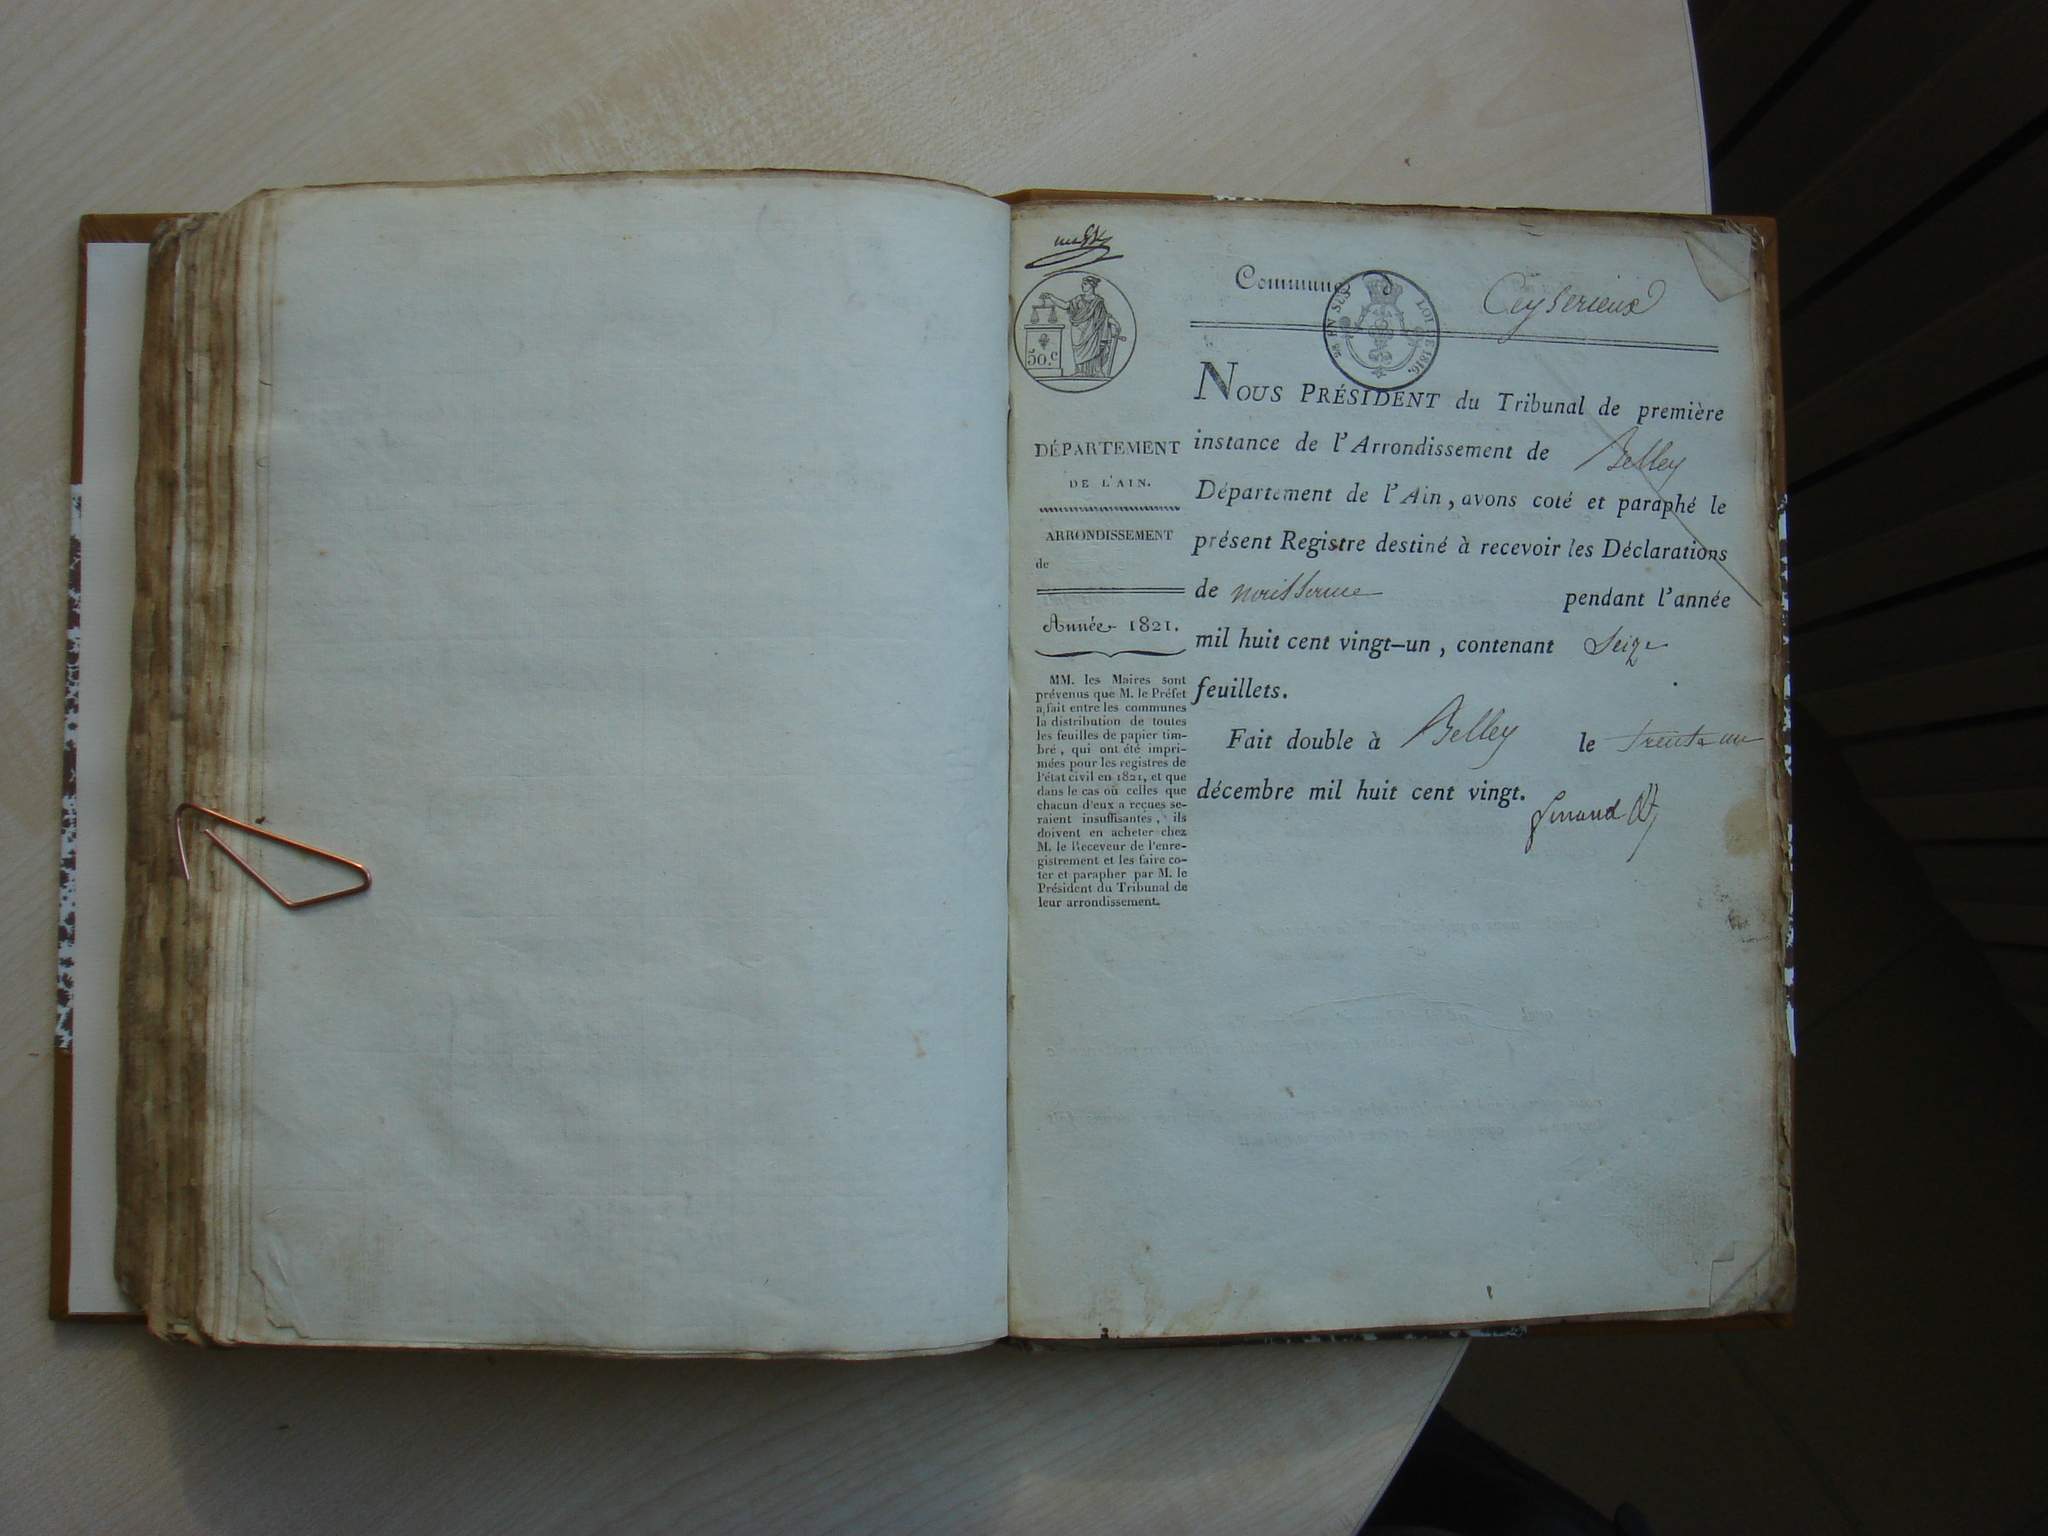 Commune d Ceyzerieux
EN SUS
LOI DE 1816.
50.c
NOUS PRÉSIDENT du Tribunal de première
instance de l'Arrondissement de Belley
Département de l'Ain, avons coté et paraphé le
présent Registre destiné à recevoir les Déclarations
de naissance pendant l'année
mil huit cent vingt-un, contenant Seize
feuillets.
Fait double à Belley le trente un
décembre mil huit cent vingt.
DÉPARTEMENT
DE L'AIN.
ARRONDISSEMENT
de
Année 1821.
MM. les Maires sont
prévenus que M. le Préfet
a fait entre les communes
la distribution de toutes
les feuilles de papier tim-
bré, qui ont été impri-
mées pour les registres de
l'état civil en 1821, et que
dans le cas où celles que
chacun d'eux a reçues se-
raient insuffisantes, ils
doivent en acheter chez
M. le Receveur de l'enre-
gistrement et les faire co-
ter et parapher par M. le
Président du Tribunal de
leur arrondissement.